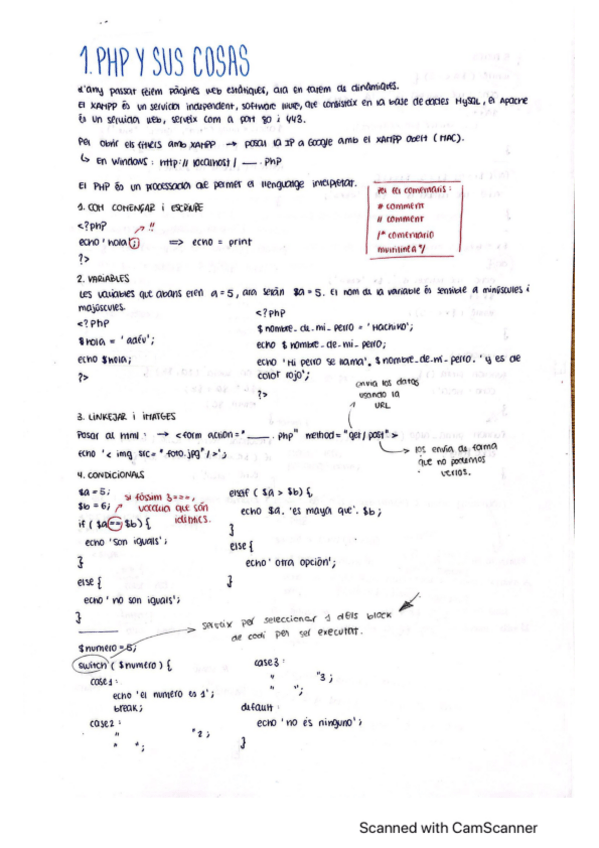 1. PHP Y SUS COSAS
L'any passat fèiem pàgines web estàtiques, ara en farem de dinàmiques.
El XAMPP és un servidor independent, software lliure, que consisteix en la base de dades MySQL, el Apache
és un servidor web, serveix com a port 80 i 443.
Per obrir els fitxers amb XAMPP → posar la IP a Google amb el XAMPP obert (MAC).
↳ En Windows: http://localhost/____.php
El PHP és un processador que permet el llenguatge interpretat.
Per fer comentaris:
# comment
// comment
/* comentario
multilínea */
1. COM COMENÇAR I ESCRIURE
<?php
echo 'hola'; → !!
⇒ echo = print
?>
2. VARIABLES
Les variables que abans eren a=5, ara seràn $a=5. El nom de la variable és sensible a minúscules i
majúscules.
<?php
$hola = 'adéu';
echo $hola;
?>
<?php
$nombre_de_mi_perro = 'Hachiko';
echo $nombre_de_mi_perro;
echo 'Mi perro se llama'. $nombre_de_mi_perro. 'y es de
color rojo';
?>
envia los datos
usando la
URL
3. LINKEJAR I IMATGES
Posar al html: → <form action="____.php" method="get/post">
echo '<img src="foto.jpg"/>';
los envia de forma
que no podemos
verlos.
4. CONDICIONALS
$a=5;
$b=6;
si fóssim 3 ===,
voldria que són
idèntics.
if ($a == $b) {
echo 'son iguals';
}
else {
echo 'no son iguals';
}
elseif ($a > $b) {
echo $a. 'es major que'. $b;
}
else {
echo 'otra opción';
}
serveix per seleccionar 1 dels block
de codi per ser executat.
$numero=5;
switch ($numero) {
case 1:
echo 'el numero es 1';
break;
case 2:
" "2;
" ";
case 3:
" "3;
" ";
default:
echo 'no és ninguno';
}
Scanned with CamScanner